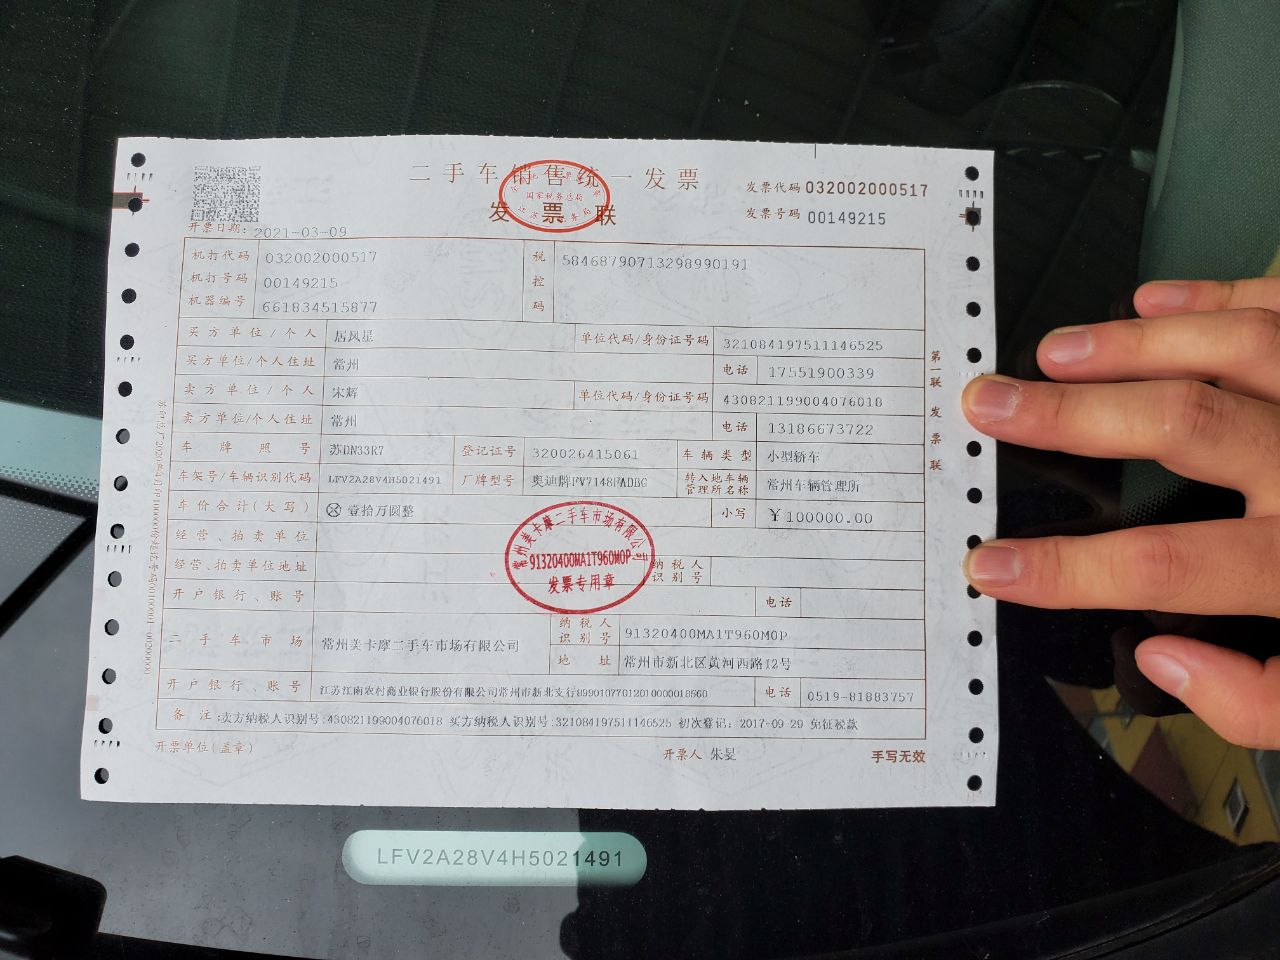 二手车销售统一发票
国家税务总局
发票联
发票代码 032002000517
发票号码 00149215
开票日期: 2021-03-09
机打代码 032002000517
机打号码 00149215
机器编号 661834515877
税控码 58468790713298990191
买方单位/个人 居凤星 单位代码/身份证号码 321084197511146525
买方单位/个人住址 常州 电话 17551900339
卖方单位/个人 宋辉 单位代码/身份证号码 430821199004076018
卖方单位/个人住址 常州 电话 13186673722
车牌照号 苏DN33R7 登记证号 320026415061 车辆类型 小型轿车
车架号/车辆识别代码 LFV2A28V4H5021491 厂牌型号 奥迪牌FV7148FADBG 转入地车辆管理所名称 常州车辆管理所
车价合计(大写) ⊗ 壹拾万圆整 小写 ¥100000.00
经营、拍卖单位
经营、拍卖单位地址 纳税人识别号
开户银行、账号 电话
常州美卡摩二手车市场有限公司
91320400MA1T960M0P
发票专用章
二手车市场 常州美卡摩二手车市场有限公司 纳税人识别号 91320400MA1T960M0P
地址 常州市新北区黄河西路12号
开户银行、账号 江苏江南农村商业银行股份有限公司常州市新北支行8990107701201000001​8560 电话 0519-81883757
备注:卖方纳税人识别号:430821199004076018 买方纳税人识别号:321084197511146525 初次登记: 2017-09-29 免征税款
开票单位(盖章) 开票人 朱旻 手写无效
第一联 发票联
LFV2A28V4H5021491